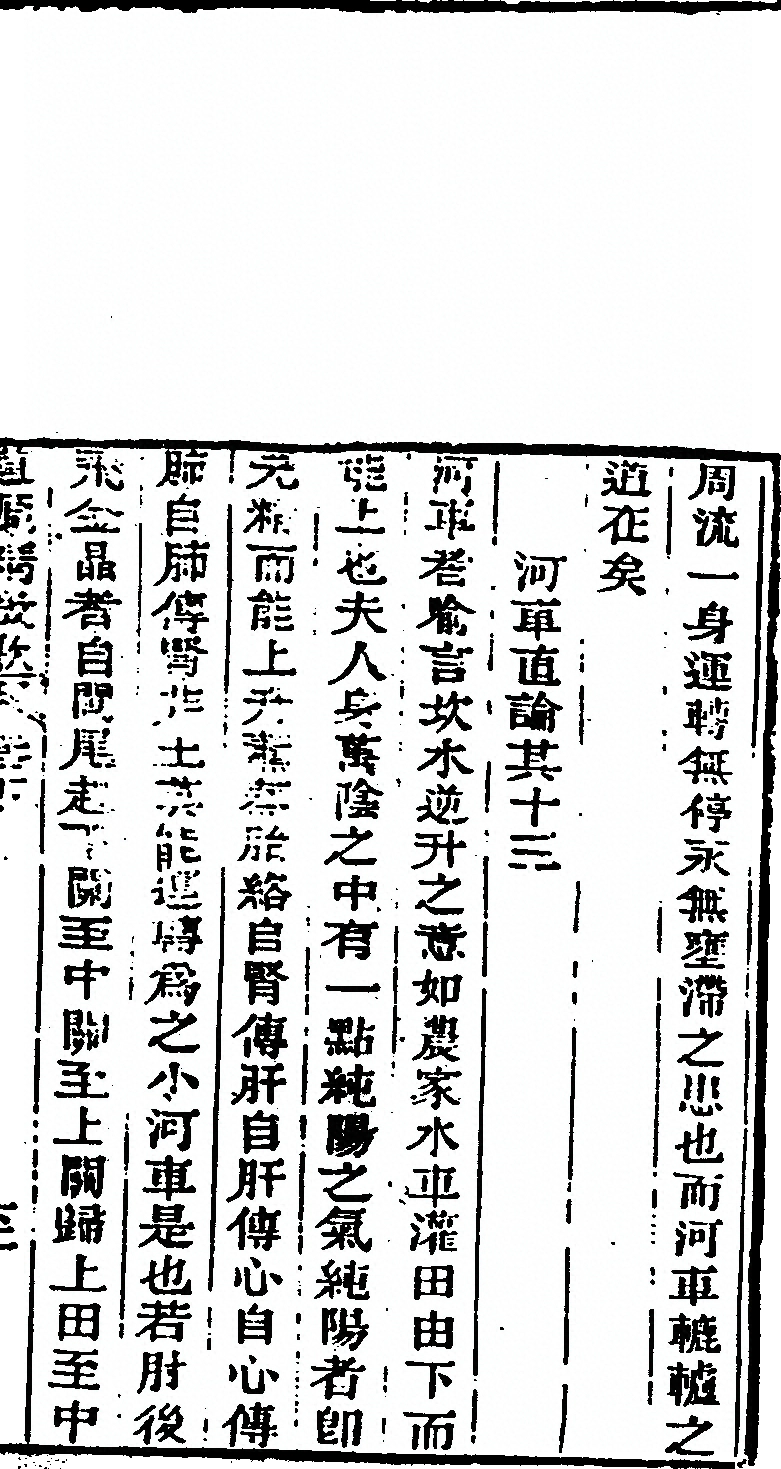 周流一身運轉無停永無壅滯之患也而河車轆轤之
道在矣
河車直論其十三
河車者喻言坎水逆升之意如農家水車灌田由下而
上也夫人身萬陰之中有一點純陽之氣純陽者卽
元精而能上升蒸胎絡自腎傳肝自肝傳心自心傳
肺自肺傳腎非土莫能運轉爲之小河車是也若肘後
飛金晶者自尾起下關至中關至上關歸上田至中